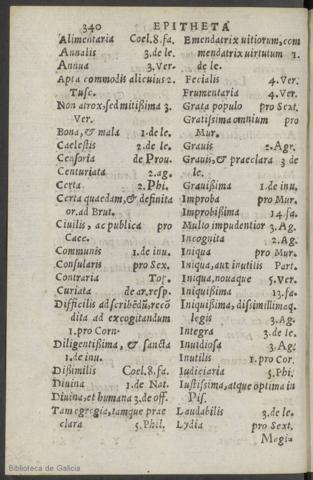 340 EPITHETA
Alimentaria Coel.8.fa.
Annalis 3.de le.
Annua 3.Ver.
Apta commodis alicuius 2.
Tusc.
Non atrox, sed mitißima 3.
Ver.
Bona, & mala 1.de le.
Caelestis 2.de le.
Censoria de Prou.
Centuriata 2.ag.
Certa 2.Phi.
Certa quaedam, & definita
or.ad Brut.
Ciuilis, ac publica pro
Caec.
Communis 1.de inu.
Consularis pro Sex.
Contraria Top.
Curiata de ar.resp.
Difficilis ad scribẽdũ, recõ
dita ad excogitandum
1.pro Corn.
Diligentißima, & sancta
1.de inu.
Dißimilis Coel.8.fa.
Diuina 1.de Nat.
Diuina, et humana 3.de off.
Tam egregia, tamque prae
clara 5.Phil.
Emendatrix uitiorum, com
mendatrix uirtutum 1.
de le.
Fecialis 4.Ver.
Frumentaria 4.Ver.
Grata populo pro Sext.
Gratißima omnium pro
Mur.
Grauis 2.Agr.
Grauis, & praeclara 3 de
le.
Grauißima 1.de inu.
Improba pro Mur.
Improbißima 14 fa.
Multo impudentior 3.Ag.
Incognita 2.Ag.
Iniqua pro Mur.
Iniqua, aut inutilis Part.
Iniqua, nouaque 5.Ver.
Iniquißima 13.fa.
Iniquißima, dißimillimaq.
legis 3.Ag.
Integra 3.de le.
Inuidiosa 3.Ag.
Inutilis 1.pro Cor.
Iudiciaria 5.Phi.
Iustißima, atque optima in
Pis.
Laudabilis 3.de le.
Lydia pro Sext.
Magis
Biblioteca de Galicia